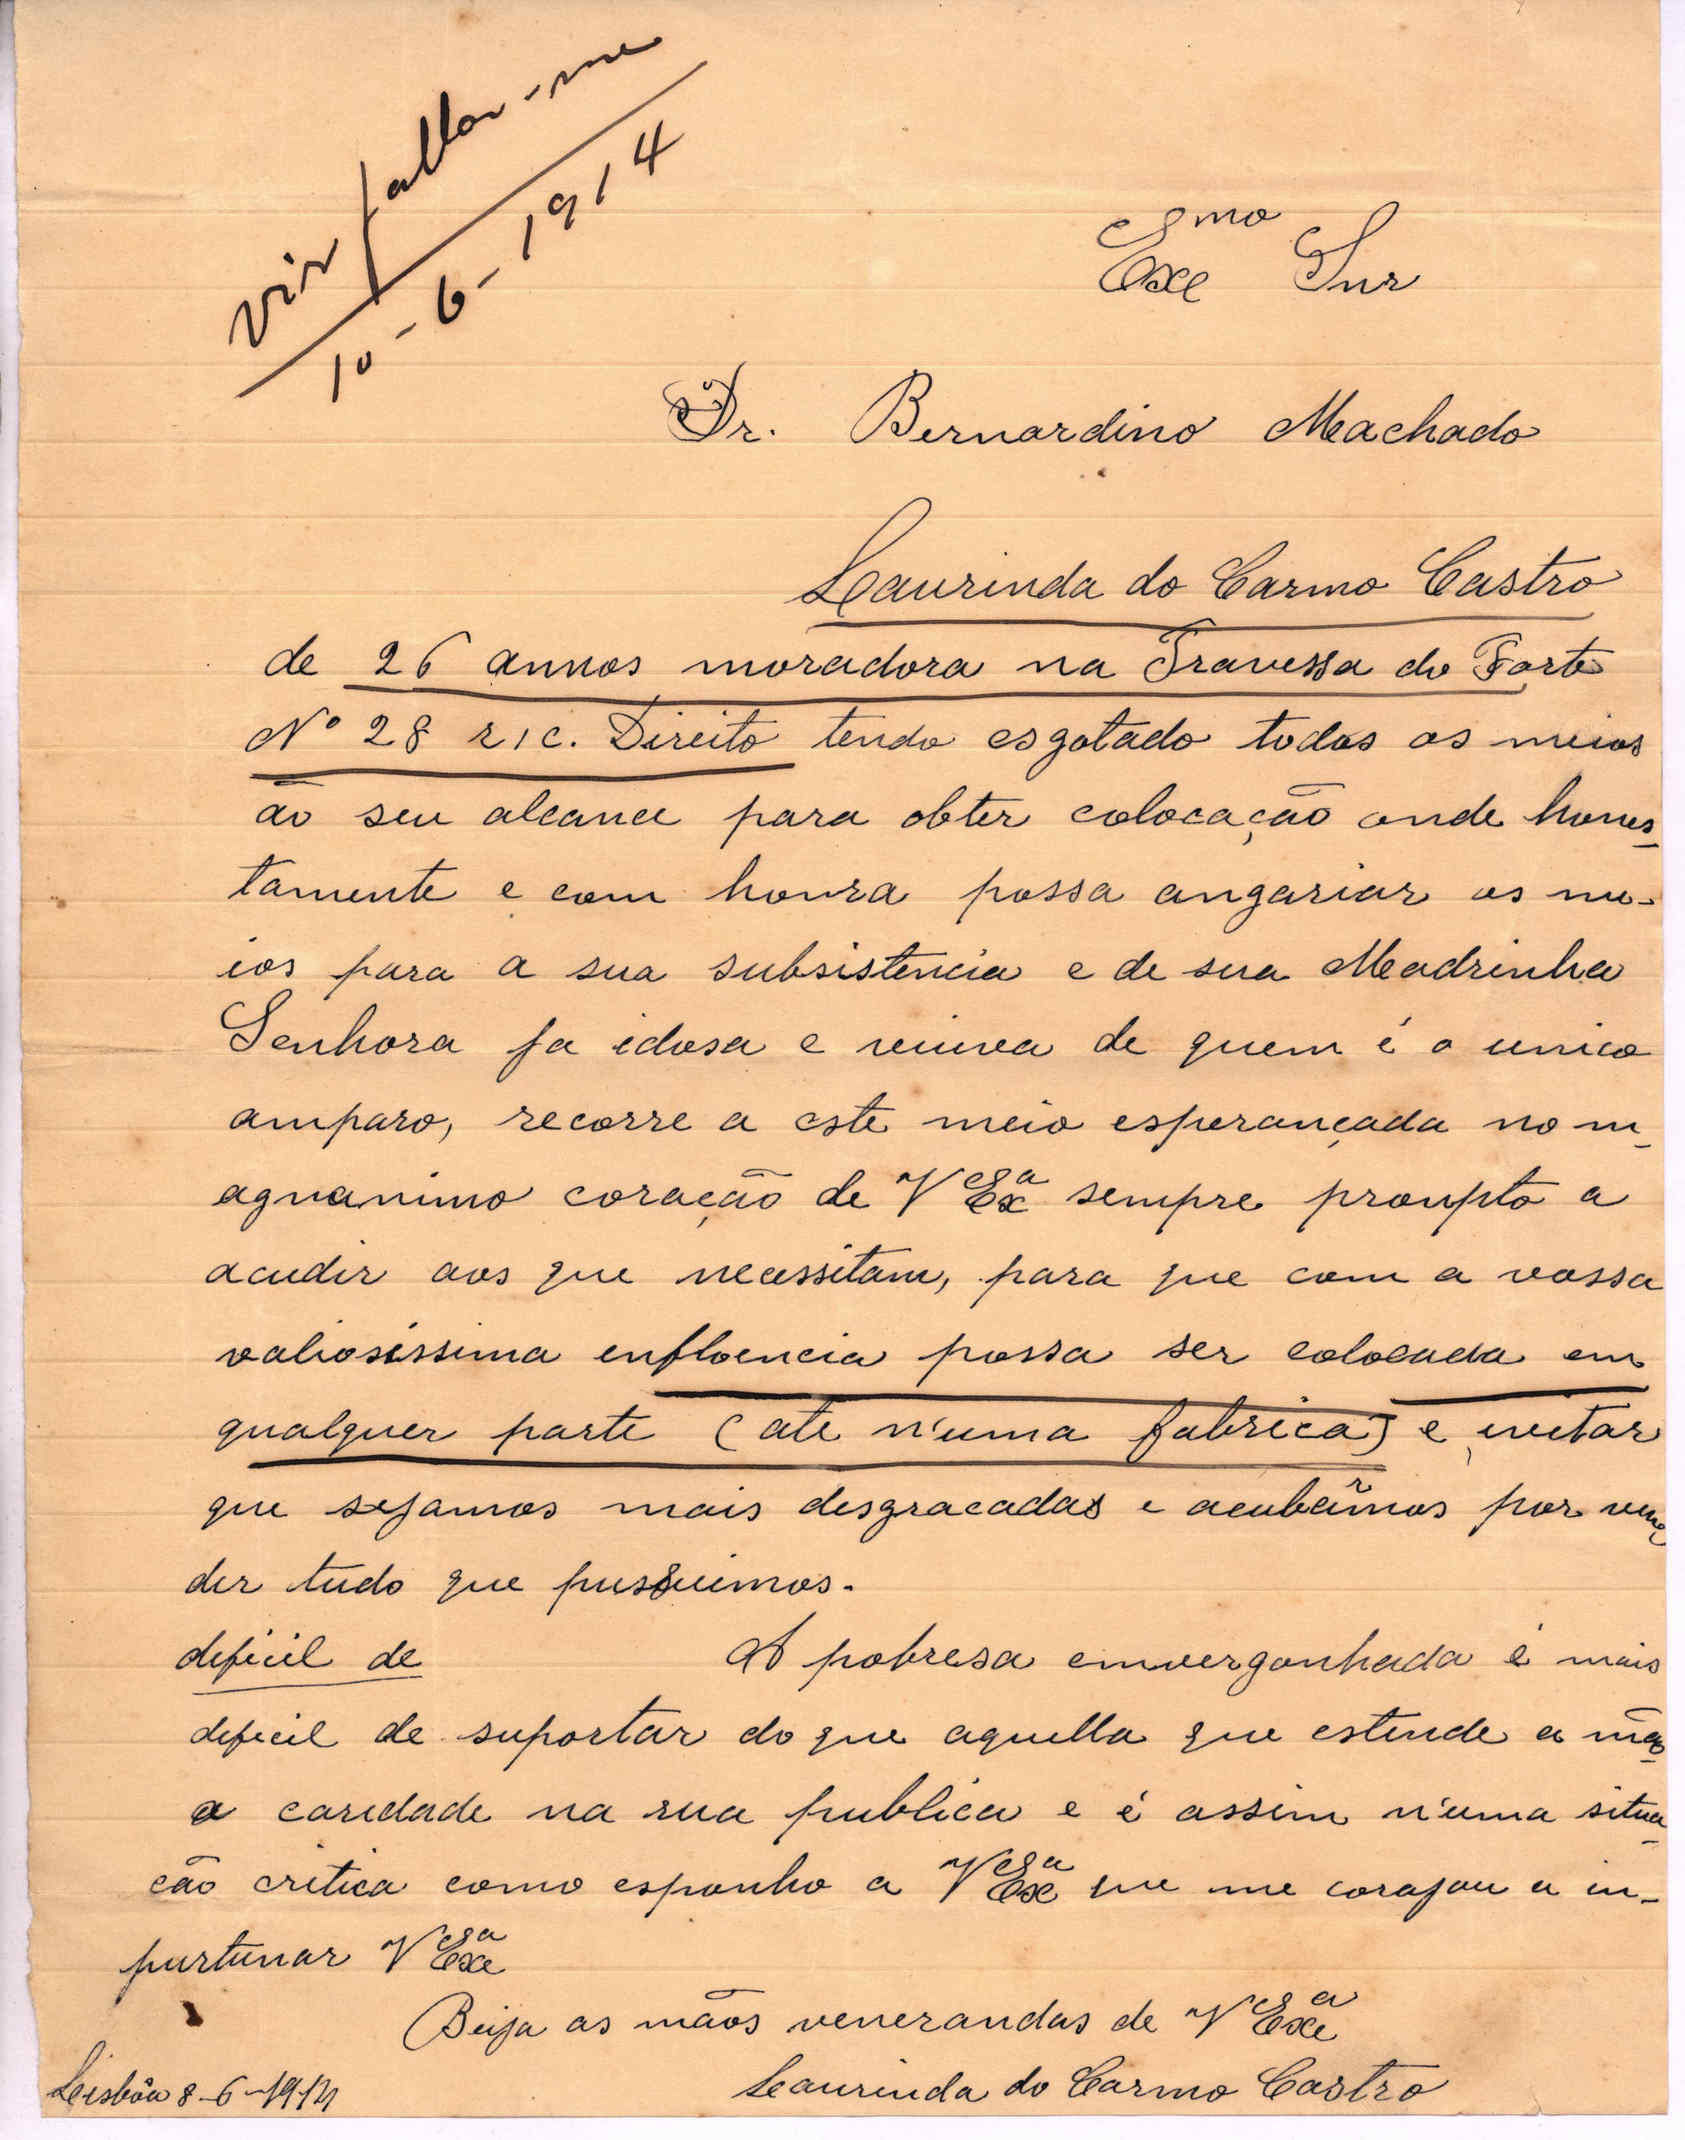 vir fallar-me
10-6-1914
Exmo Snr
Dr. Bernardino Machado
Laurinda do Carmo Castro
de 26 annos moradora na Travessa do Forte
Nº 28 r/c. Direito tendo esgotado todos os meios
ão seu alcance para obter colocação onde hones-
tamente e com honra possa angariar os me-
ios para a sua subsistencia e de sua Madrinha
Senhora ja idosa e viuva de quem é o unico
amparo, recorre a este meio esperançada no m-
agnanimo coração de V Exa sempre prompto a
acudir aos que necessitam, para que com a vossa
valiosissima enfloencia possa ser colocada em
qualquer parte (ate n'uma fabrica) e evitar
que sejamos mais desgracadas e acubâmos por ven-
der tudo que pussuimos.
deficil de A pobresa emvergonhada é mais
deficil de suportar do que aquella que estende a mão
a caredade na rua publica e é assim n'uma situa-
cão critica como esponho a V Exa que me corajou a in-
purtunar V Exa
Beija as mãos venerandas de V Exa
Laurinda do Carmo Castro
Lisbôa 8-6-1914